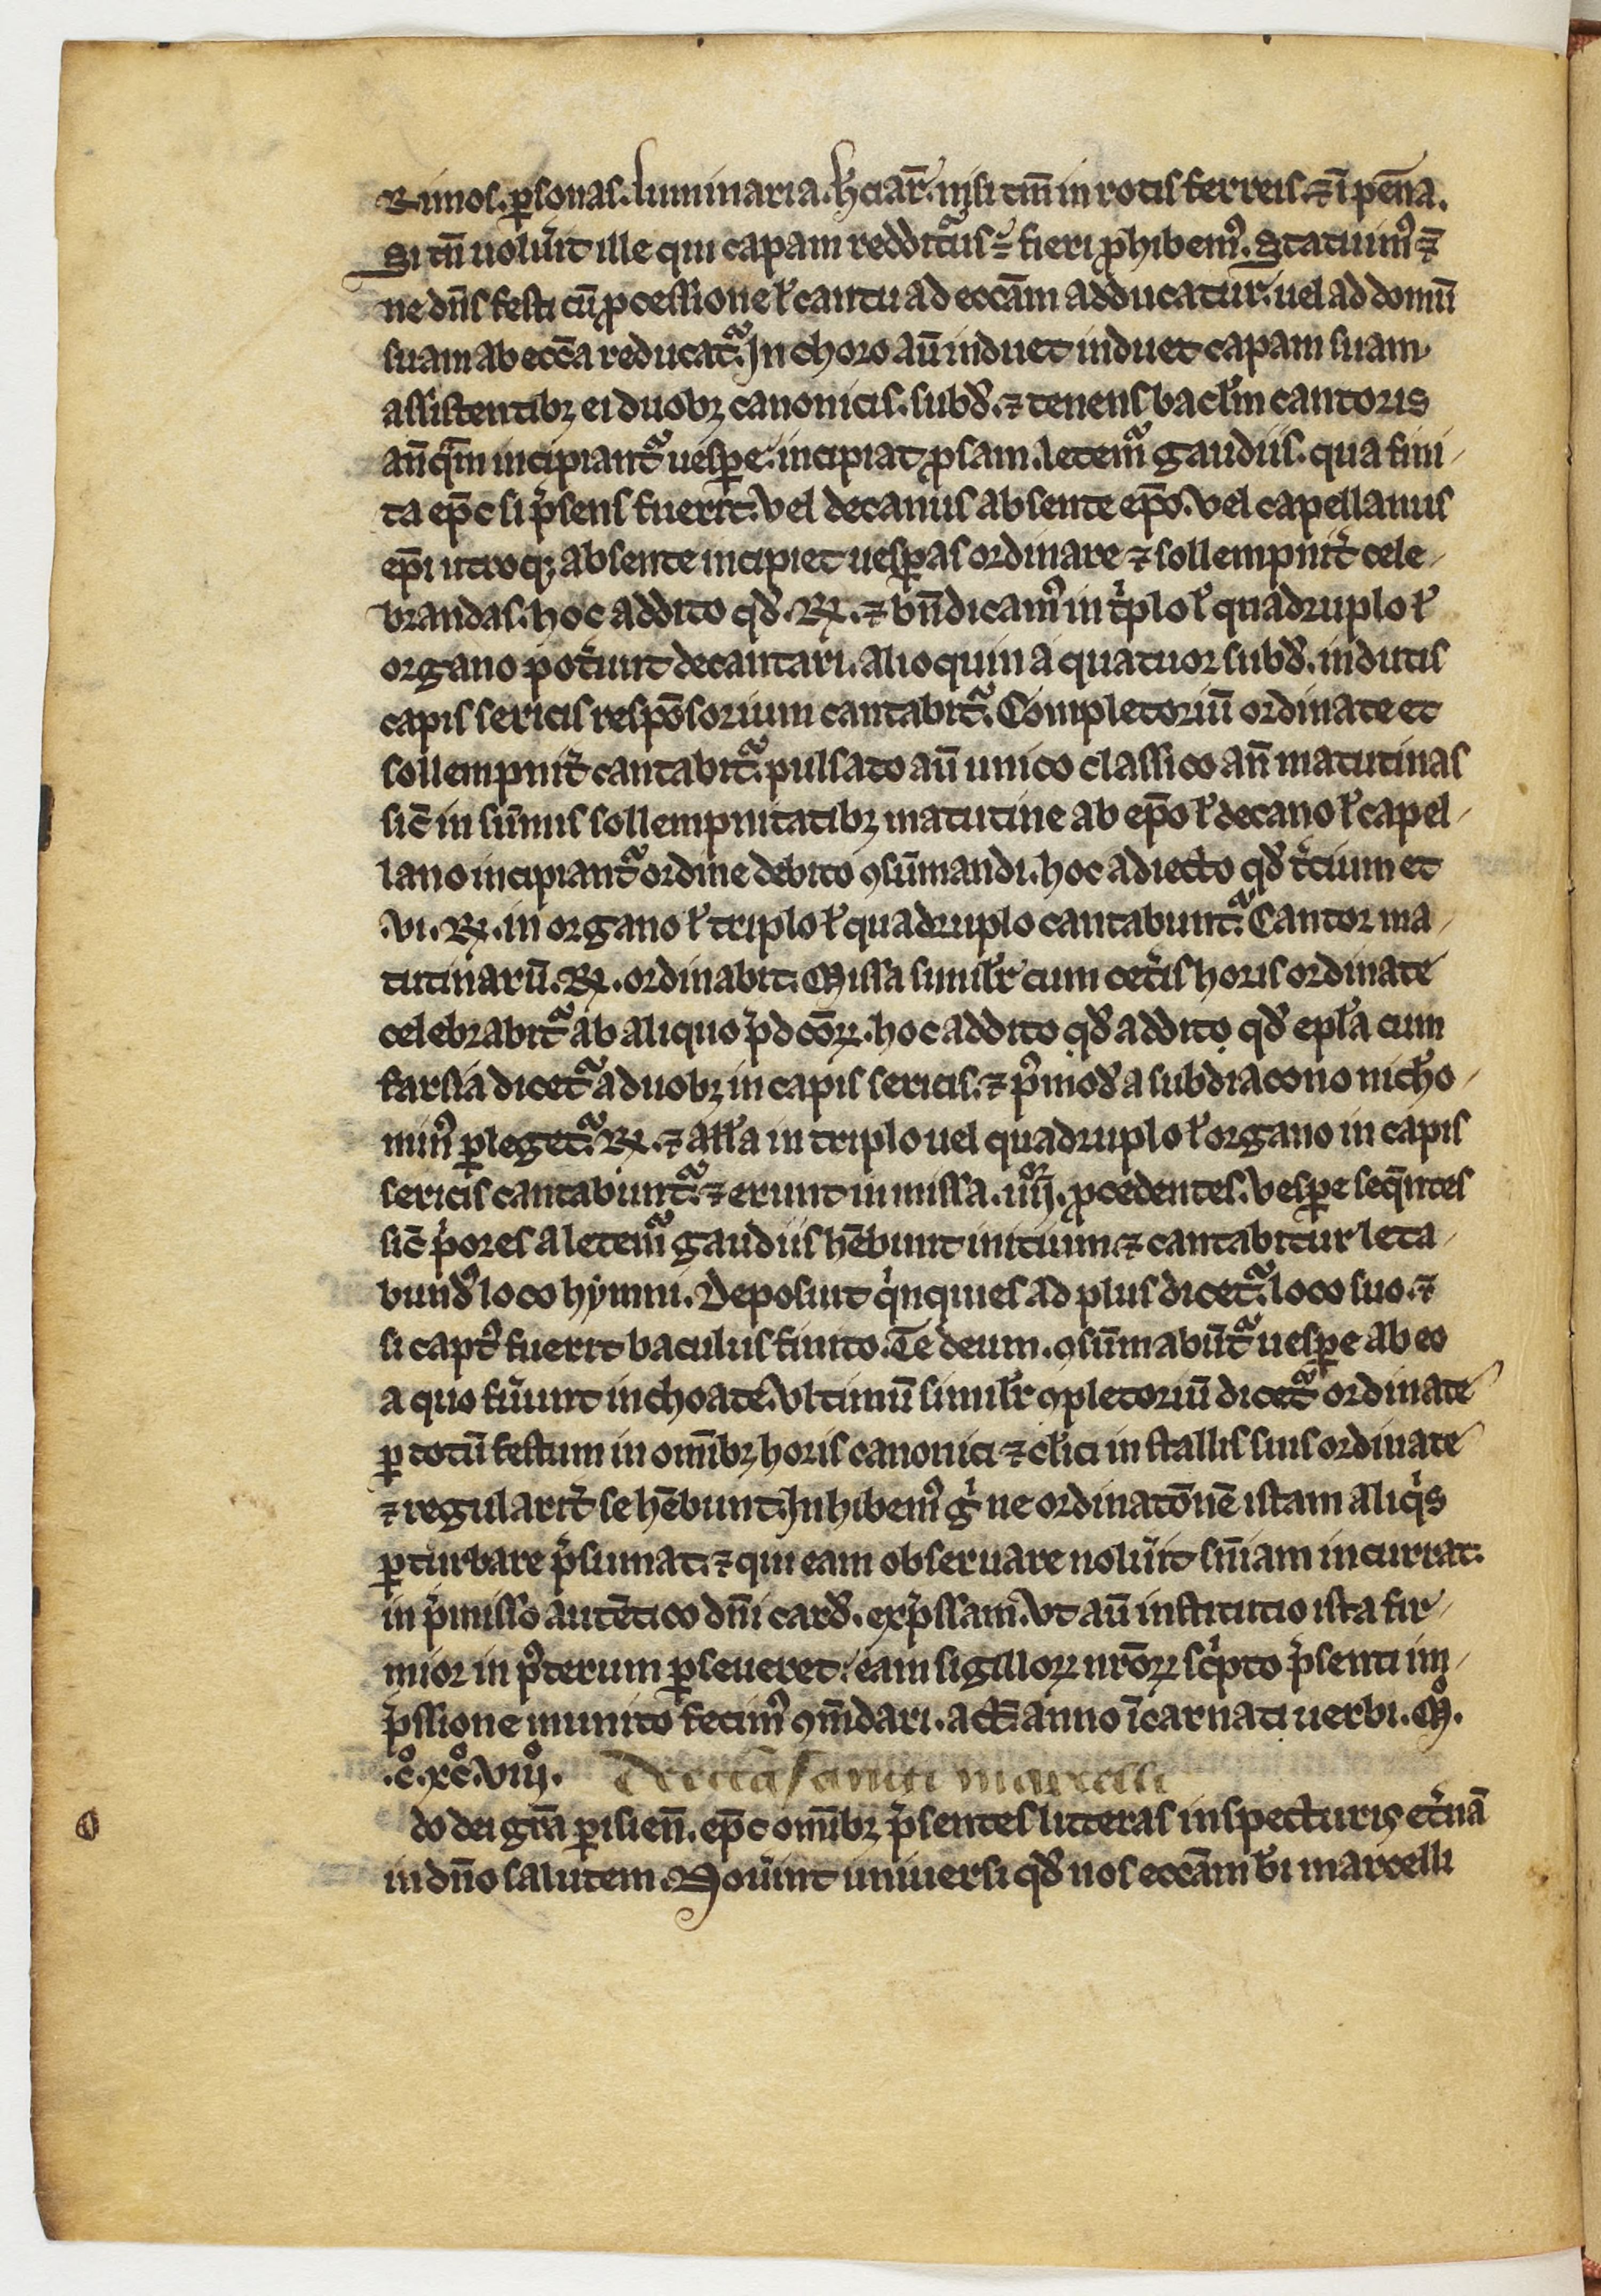 Rimos. ꝑsonas. luminaria. h̓ciar̄. nisi tm̄ in rotis ferreis. ⁊ ī pēna.
Si tn̄ uolu̓it ille qui capam redditur᷑us ÷ fieri ꝓhibem᷒. Statuim᷒ ⁊
ne dn̄s festi cū ꝓcessione ł cantu ad ecc̄am adducatur. uel ad domū
suam ab ecc̄a reducat᷑. In choro aū induet induet capam suam
assistentibꝫ ei duobꝫ canonicis. subd̓. ⁊ tenens bacl̓m cantoris
an̄q̄m incipiant᷑ uesꝑe. incipiat ꝓsam. letem᷑ gaudiis. qua fini
ta ep̄c si p̓sens fuerit. vel decanus absente ep̄o. vel capellanus
ep̄i utroqꝫ absente incipiet uesꝑas ordinare ⁊ sollempnit̓ cele
brandas. hoc addito qd̓. ℞. ⁊ bn̄dicam᷒ in t̓plo ł quadruplo ł
organo pot̓unt decantari. alioquin a quatuor subd̓. indutis
capis sericis respōsorium cantabit᷑. Completoriū ordinate et
sollempnit̓ cantabit᷑. pulsato aū unico classico an̄ matutinas
sic̄ in sūmis sollempnitatibꝫ matutine ab ep̄o ł decano ł capel
lano incipiant᷑ ordine debito ꝯsūmandi. hoc adiecto qd̓ t̓cium et
.vi. ℞. in organo ł triplo ł quadruplo cantabunt᷑. Cantor ma
tutinarū. ℞. ordinabit. Missa simil̓r cum cet̓is horis ordinate
celebrabit᷑ ab aliquo p̓dc̄oꝝ. hoc addito qd̓ addito qd̓ ep̄l̓a cum
farsia dicet᷑ a duobꝫ in capis sericis. ⁊ p᷒mod̓ a subdiacono nich̓o
min᷒ ꝑleget᷑. ℞. ⁊ all̓a in triplo uel quadruplo ł organo in capis
sericis cantabunt᷑. ⁊ erunt in missa. iiij̊. ꝓcedentes. vesꝑe seq̄ntes
sic̄ p̓ores a letem᷑ gaudiis hēbunt initium. ⁊ cantabitur leta
bund᷒ loco hymni. Deposuit q̓nquies ad plus dicet᷑. loco suo. ⁊
si capt᷒ fuerit baculus finito. Te deum. ꝯsūmabūt᷑ uesꝑe ab eo
a quo fu̓unt inchoate. vltimū simil̓r ꝯpletoriū dicet᷑ ordinate
ꝑ totū festum in om̄ibꝫ horis canonici ⁊ cl̓ici in stallis suis ordinate
⁊ regularit̓ se hēbunt. Inhibem᷒ g̓ ne ordinatōnē istam aliq̓s
ꝑturbare p̓sumat. ⁊ qui eam obseruare nolu̓it sn̄iam incurrat.
in p̓misso autētico dn̄i card̓. exp̓ssam. vt aū institutio ista fir
mior in p᷒terum ꝑseueret. eam sigilloꝝ nr̄oꝝ sc̓pto p̓senti im
p̓ssione munito fecim᷒ ꝯm̄dari. act̄. anno īcarnati uerbi. M̊.
.c̊. xc̊. viij̊. De ecc̄a sancti marcelli
do dei gr̄a ꝑisien̄. ep̄c om̄ibꝫ p̓sentes litteras inspecturis et̓nā
in dn̄o salutem. Nou̓int uniuersi qd̓ nos ecc̄am b̓i marcelli